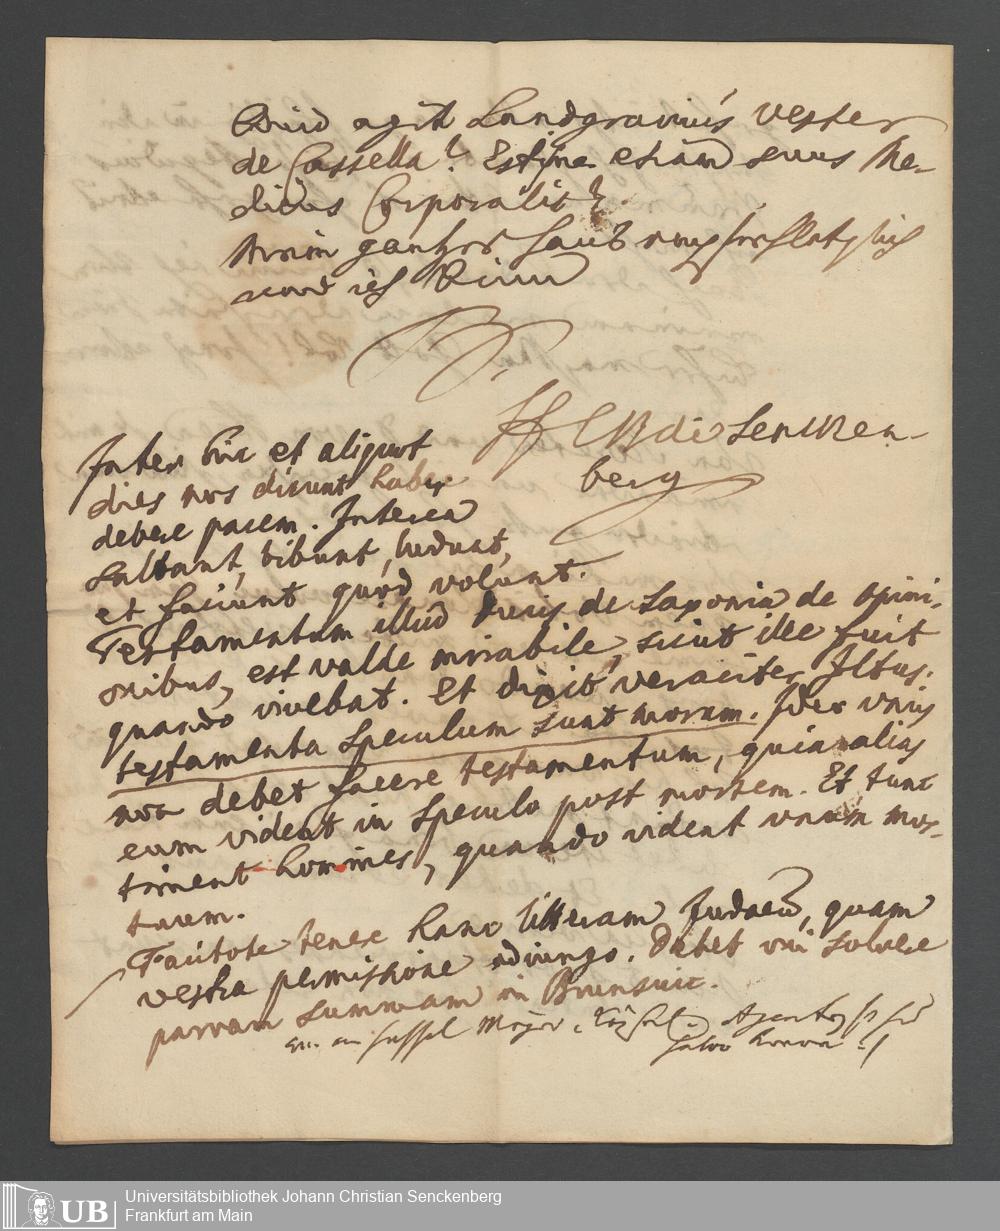 Quid agit Landgravius Vester
de Cassella? Estque etiam suus Me-
dicus Corporalis?
Mein gantzes haus
und ich bin
HCB de Sencken-
berg
Inter hic et aliquot
dies nos dicunt habere
debere pacem. Interea
saltant, bibunt, ludunt,
et faciunt quod volunt.
Testamentum illud Ducis de Saxonia de opini-
onibus, est valde mirabile, sicut ille fuit
quando vivebat. Et dixit veraciter Iltus:
testamenta speculum sunt morum. Ideo unus
non debet facere testamentum, quia alias
eum vident in speculo post mortem. Et tunc
timent homines, quando vident unum mor-
tuum.
Facitote tenere hanc litteram Judaeo, quam
vestra permissione adiungo. Debet mi solvere
parvam summam in Brunsuic.
Universitätsbibliothek Johann Christian Senckenberg
Frankfurt am Main
UB